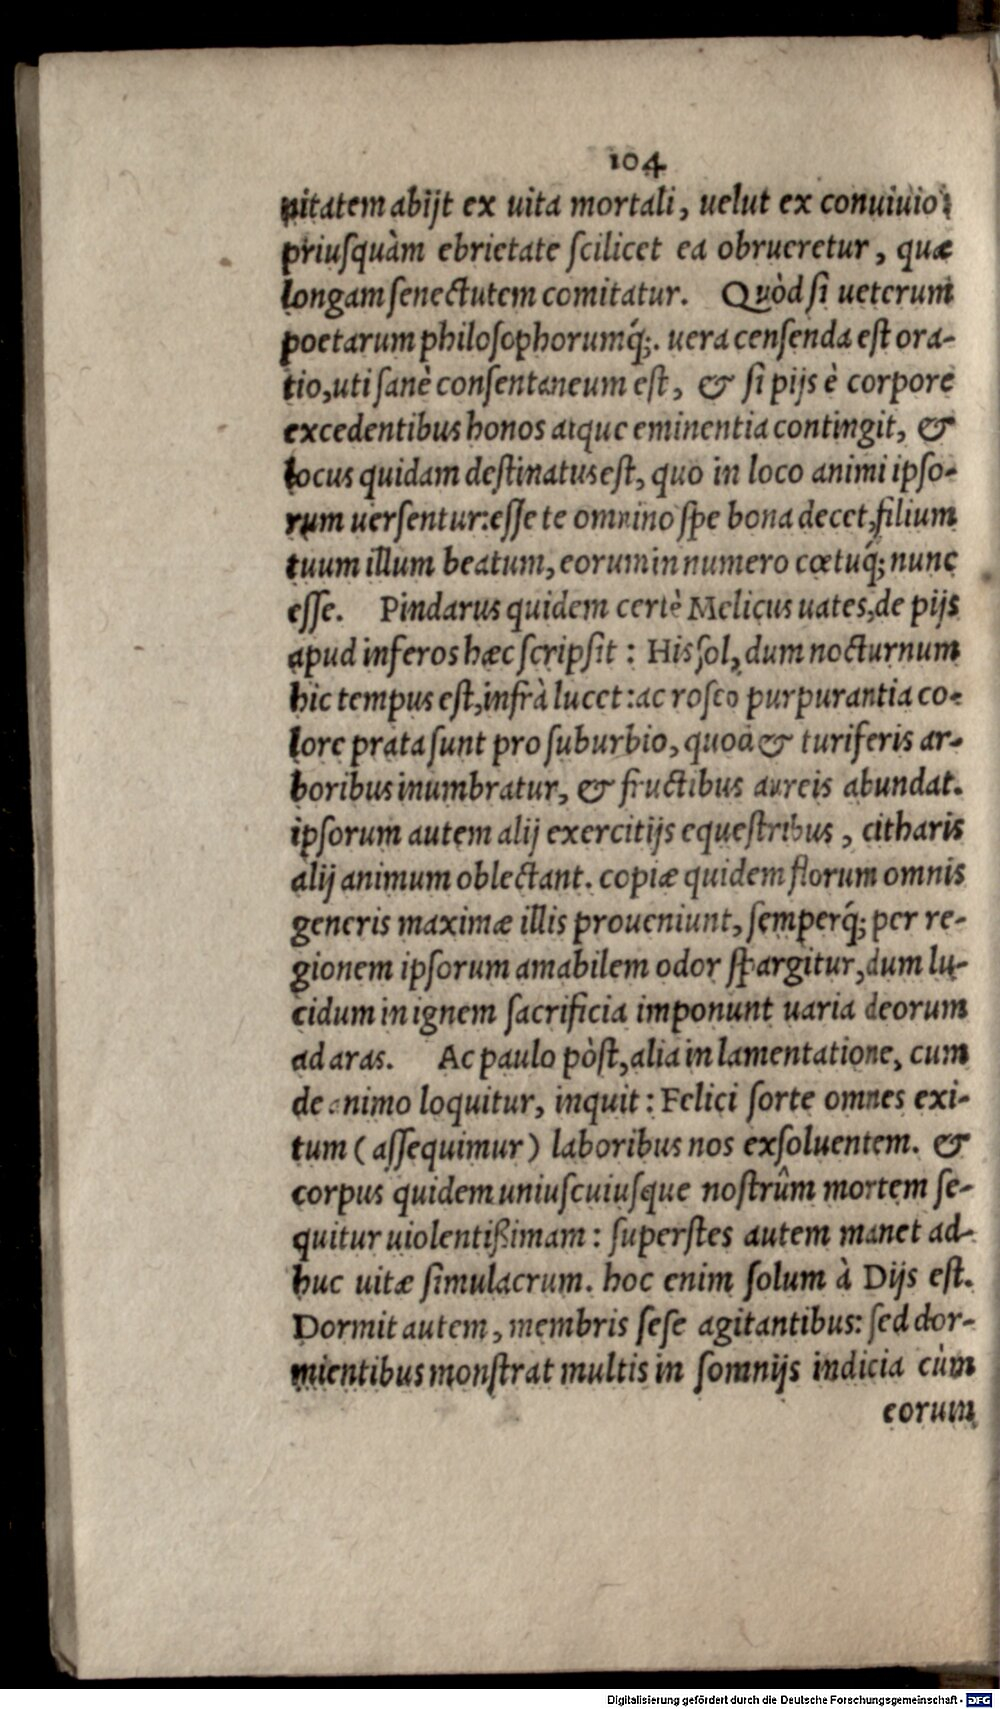 104
nitatem abijt ex uita mortali, uelut ex conuiuio;
priusquàm ebrietate scilicet ea obrueretur, quæ
longam senectutem comitatur. Quòd si ueterum
poetarum philosophorumq́;. uera censenda est ora-
tio, uti sanè consentaneum est, & si pijs è corpore
excedentibus honos atque eminentia contingit, &
locus quidam destinatus est, quo in loco animi ipso-
rum uersentur: esse te omnino spe bona decet, filium
tuum illum beatum, eorum in numero cœtuq́; nunc
esse. Pindarus quidem certè Melicus uates, de pijs
apud inferos hæc scripsit: His sol, dum nocturnum
hic tempus est, infrà lucet: ac roseo purpurantia co-
lore prata sunt pro suburbio, quod & turiferis ar-
boribus inumbratur, & fructibus aureis abundat.
ipsorum autem alij exercitijs equestribus, citharis
alij animum oblectant. copiæ quidem florum omnis
generis maximæ illis proueniunt, semperq́; per re-
gionem ipsorum amabilem odor spargitur, dum lu-
cidum in ignem sacrificia imponunt uaria deorum
ad aras. Ac paulo pòst, alia in lamentatione, cum
de animo loquitur, inquit: Felici sorte omnes exi-
tum (assequimur) laboribus nos exsoluentem. &
corpus quidem uniuscuiusque nostrûm mortem se-
quitur uiolentißimam: superstes autem manet ad-
huc uitæ simulacrum. hoc enim solum à Dijs est.
Dormit autem, membris sese agitantibus: sed dor-
mientibus monstrat multis in somnijs indicia cùm
eorum
Digitalisierung gefördert durch die Deutsche Forschungsgemeinschaft - DFG